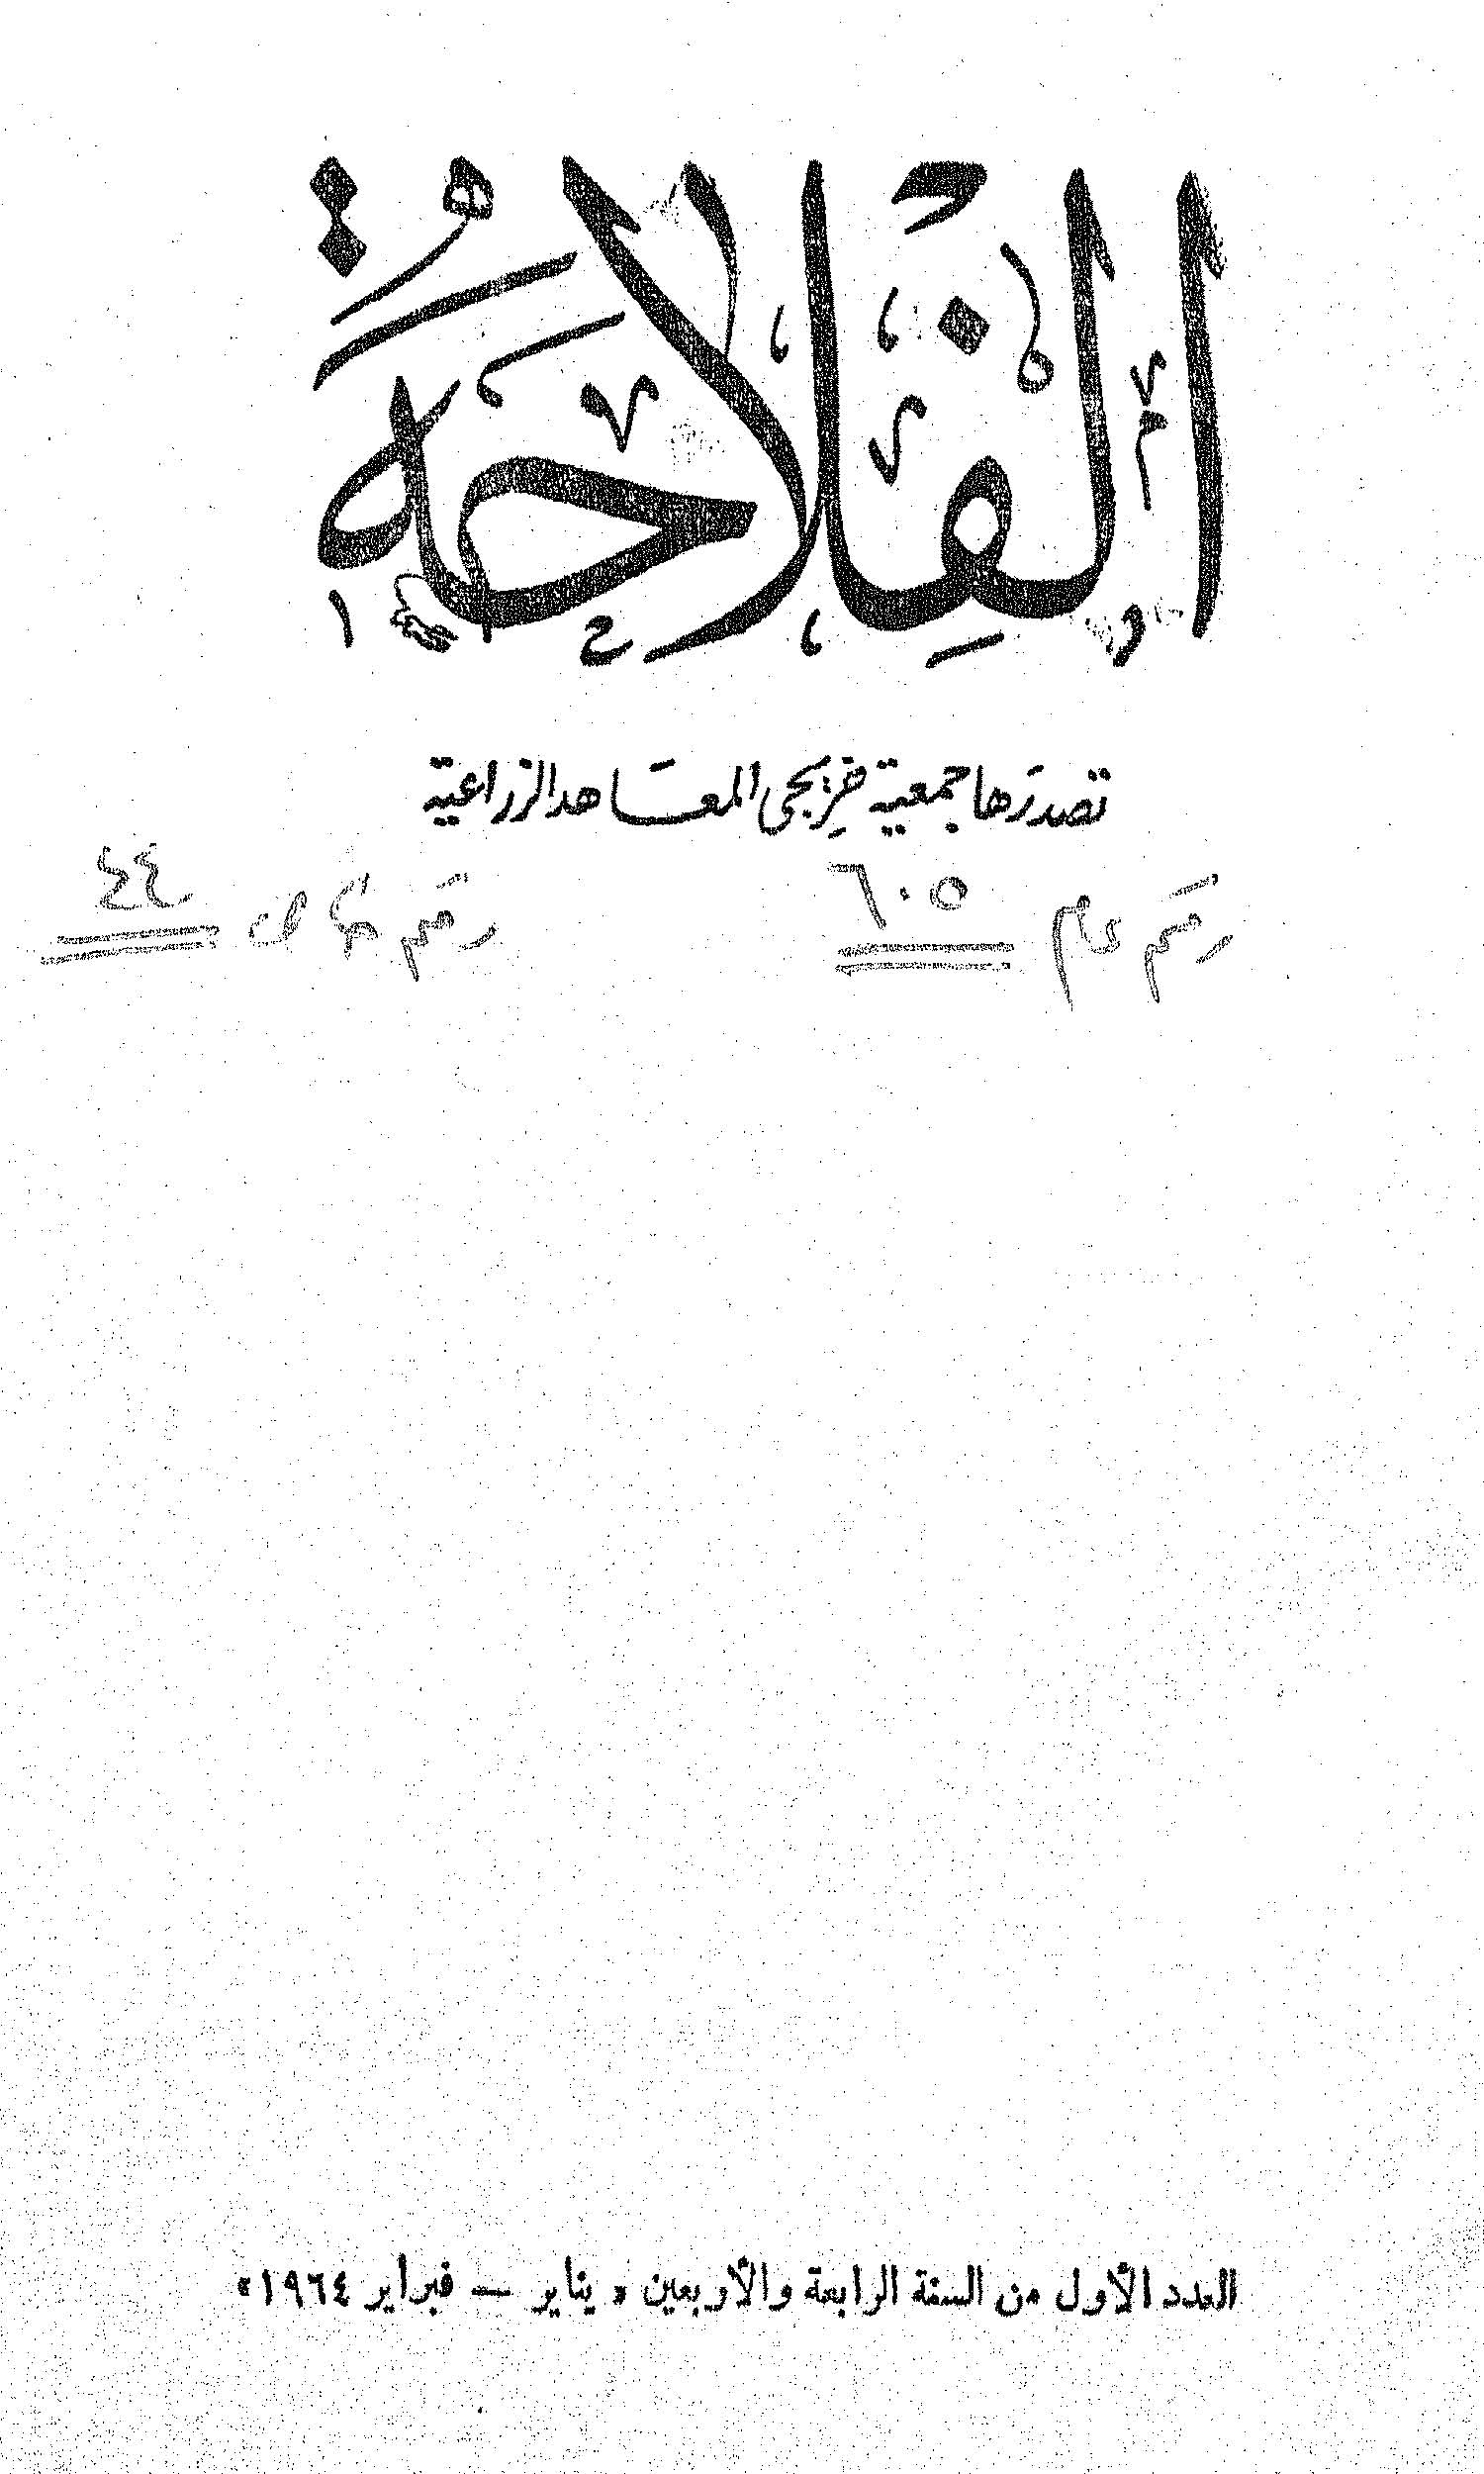 الفلاحة
تصدرها جمعية خريجى المعاهد الزراعية
رقم عام ٦٠٥ رقم خاص ٤٤
العدد الأول من السنة الرابعة والأربعين « يناير — فبراير ١٩٦٤ »